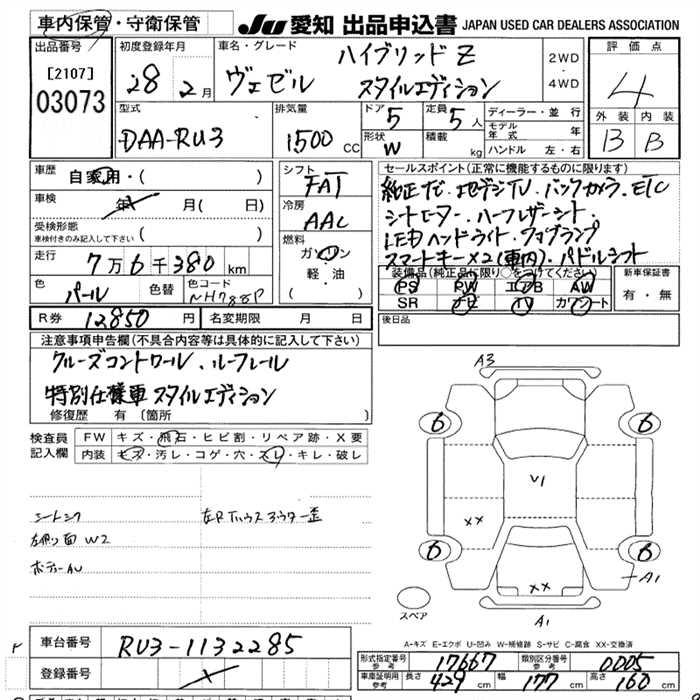 車内保管・守衛保管
JU 愛知 出品申込書 JAPAN USED CAR DEALERS ASSOCIATION
出品番号 [2107] 03073
初度登録年月 28 2月
車名・グレード ハイブリッドZ
ヴェゼル スタイルエディション
2WD・4WD
評価点 4
外装 内装
B B
型式 DAA-RU3
排気量 1500CC
ドア 5 定員 5人
形状 W 積載 kg
ディーラー・並行
モデル年式 年
ハンドル 左・右
車歴 自家用・( )
車検 年 月( 日)
受検形態
車検付きのみ記入して下さい( )
走行 7万6千380km
色 パール 色替 色コード NH788P
シフト FAT
冷房 AAC
燃料 ガソリン
軽・油
( )
セールスポイント(正常に機能するものに限ります)
純正ナビ・地デジTV・バックカメラ・ETC
シートヒーター・ハーフレザーシート・
LEDヘッドライト・フォグランプ
スマートキー×2(車内)・パドルシフト
装備品(純正品に限り○をつけてください)
PS PW エアB AW
SR ナビ TV カワシート
新車保証書
有・無
R券 12850円 名変期限 月 日
後日品
注意事項申告欄(不具合内容等は具体的に記入して下さい)
クルーズコントロール・ルーフレール
特別仕様車 スタイルエディション
修復歴 有(箇所 )
検査員記入欄
FW キズ・飛石・ヒビ割・リペア跡・X要
内装 キズ・汚レ・コゲ・穴・スレ・キレ・破レ
シートシワ
左Rタイヤハウスアウター歪
左側面W2
ボディーAU
A3
6 6
V1
XX
6 6
XX
A1
A1
スペア
A-キズ E-エクボ U-凹み W-補修跡 S-サビ C-腐食 XX-交換済
車台番号 RU3-1132285
登録番号
形式指定番号 参考 17667 類別区分番号 参考 0005
車庫証明用 参考 長さ 429cm 幅 177cm 高さ 160cm